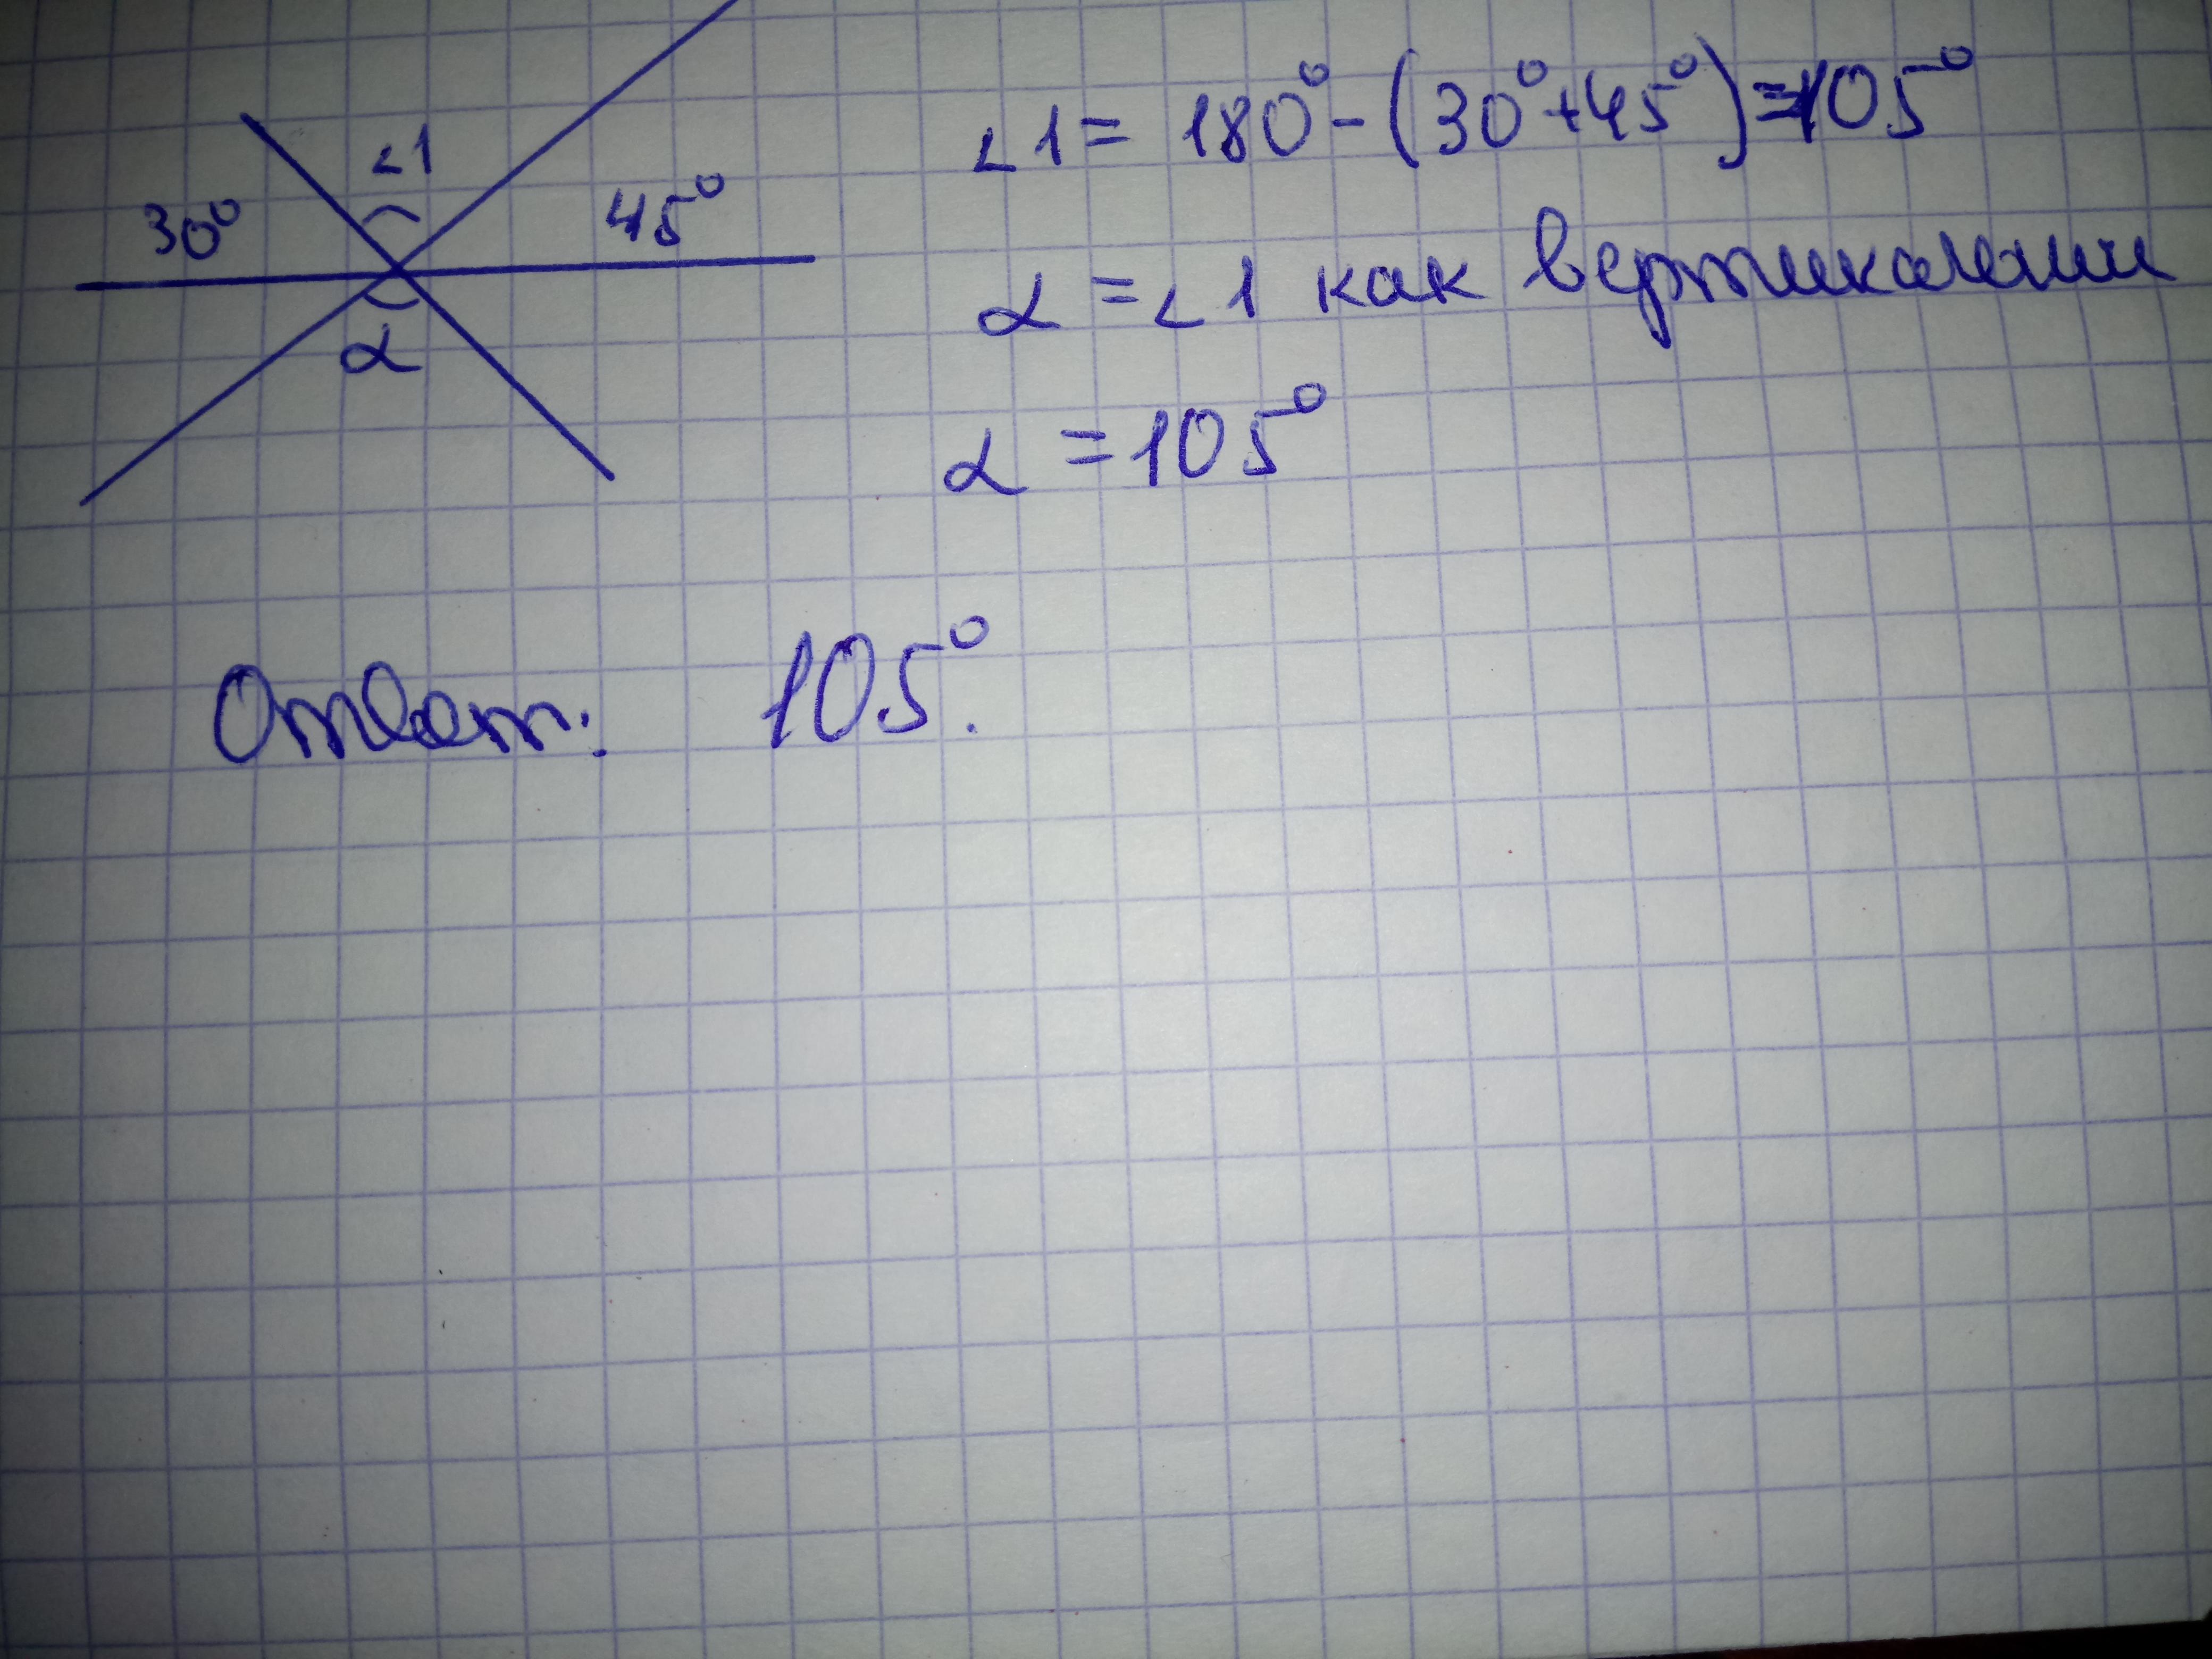 ∠1
30°
45°
α
∠1 = 180° - (30° + 45°) = 105°
α = ∠1 как вертикальные
α = 105°
Ответ: 105°.